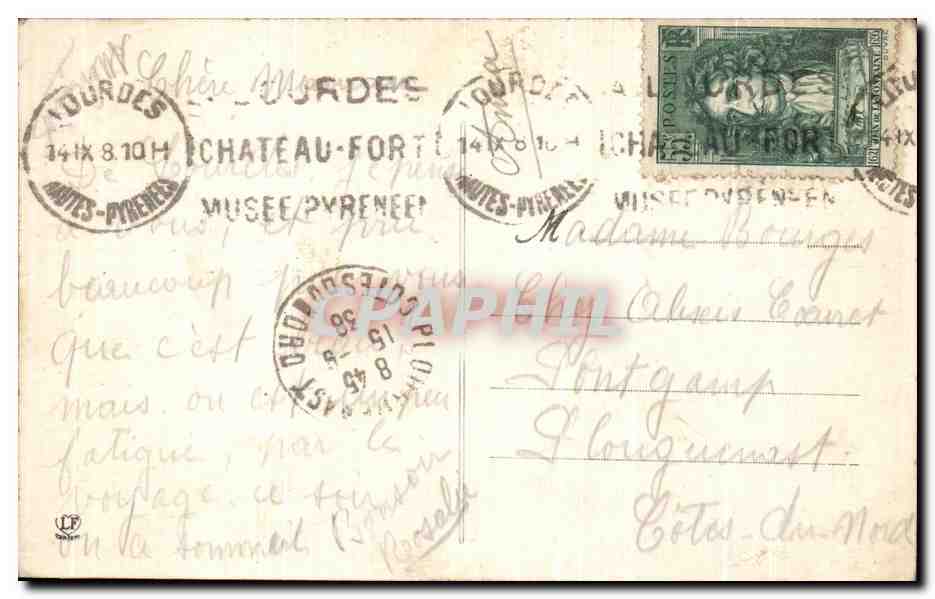 Chère
LOURDES
14 IX 8.10H
HAUTES-PYRENEES
LOURDES
CHATEAU-FORT
MUSEE PYRENEEN
De Lourdes, je pense
à vous, et prie
beaucoup pour vous
que c'est
mais on est un peu
fatigué, par le
voyage ce soir
on a sommeil
Bonsoir
Rosalie
LF
LOURDES
14 IX 8.10H
HAUTES-PYRENEES
A LOURDES
CHATEAU-FORT
MUSEE PYRENEEN
POSTES
55c
RF
PLOUGUENAST COTES DU NORD
8 45
15 -9
38
CPAPHIL
Madame Bourges
Chez Alexis
Pontgamp
Plouguenast
Côtes-du-Nord